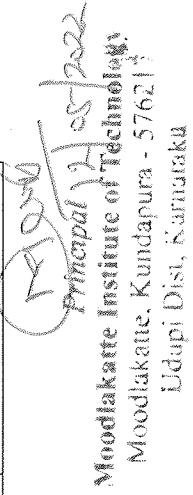 Principal 21/05/2022
Moodlakatte Institute of Technology
Moodlakatte, Kundapura - 576217
Udupi Dist, Karnataka